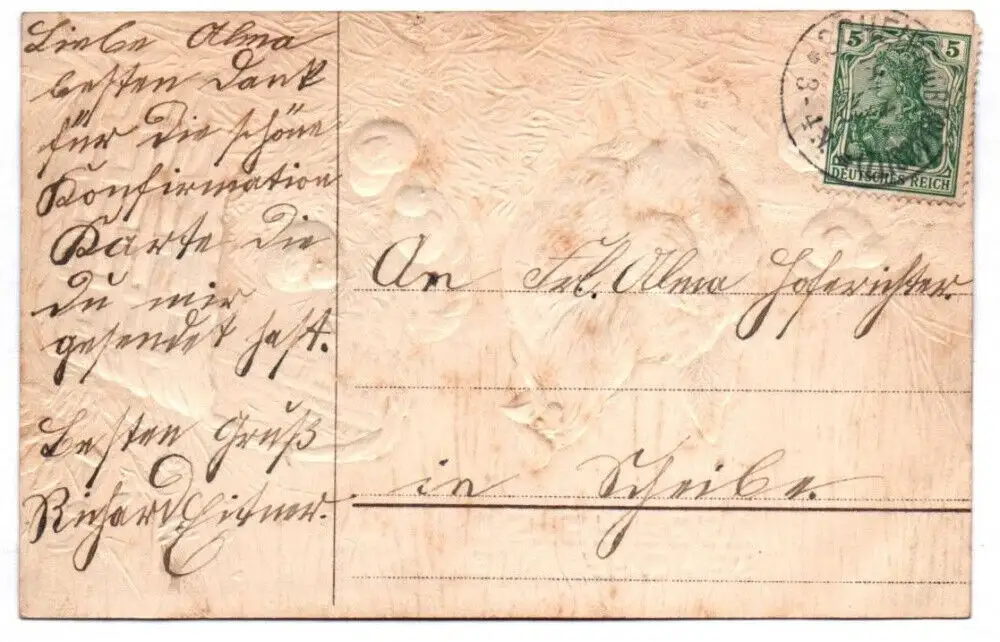 Liebe Alma
besten Dank
für die schöne
Konfirmation
Karte die
du mir
gesendet hast.
besten Gruß
Richard
An Frl. Alma Hoferichter.
in Scheibe.
5 5
DEUTSCHES REICH